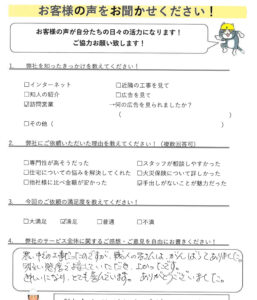 お客様の声をお聞かせください！
お客様の声が自分たちの日々の活力になります！
ご協力お願い致します！
1. 弊社を知ったきっかけを教えてください！
□インターネット □近隣の工事を見て
□知人の紹介 □広告を見て
☑訪問営業 →何の広告を見られましたか？
( )
□その他 ( )
2. 弊社にご依頼いただいた理由を教えてください！（複数回答可）
□専門性が高そうだった □スタッフが相談しやすかった
□住宅についての悩みを解決してくれた □火災保険について詳しかった
□他社様に比べ金額が安かった ☑手出しがないことが魅力だった
3. 今回のご依頼の満足度を教えてください！
□大満足 ☑満足 □普通 □不満
4. 弊社のサービス全体に関するご感想・ご意見を自由にお書きください！
暑い中の工事だったのですが、職人の方にはよくがんばってありました。
いただき よかったです。
きれいになり、とても喜んでいます。ありがとうございました。